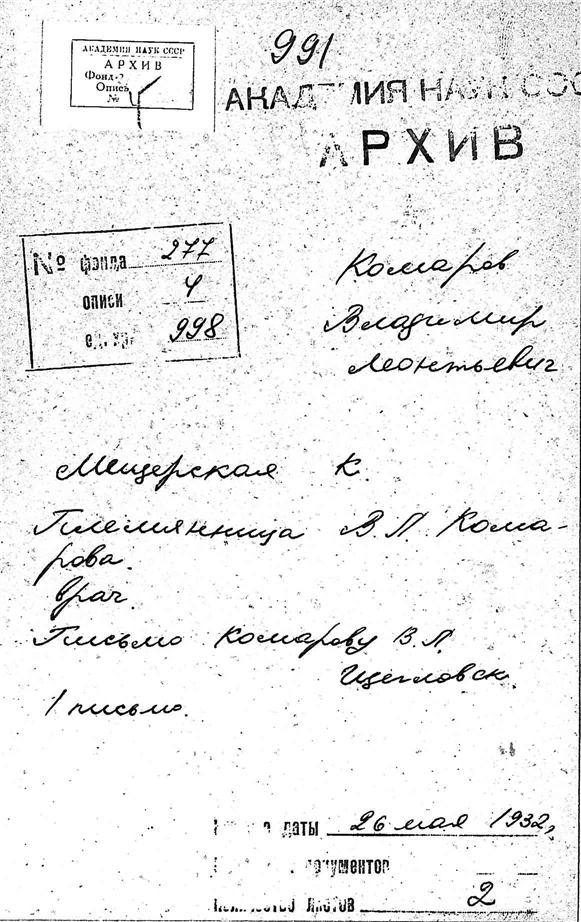 АКАДЕМИЯ НАУК СССР
АРХИВ
Фонд
Опись 4
№
991
АКАДЕМИЯ НАУК СССР
АРХИВ
№ фонда 277
описи 4
ед. хр. 998
Комаров
Владимир
Леонтьевич
Мещерская К.
Племянница В Л Кома-
рова.
Врач.
Письмо Комарову В. Л.
Щегловск.
1 письмо.
даты 26 мая 1932,
документов
Количество листов 2